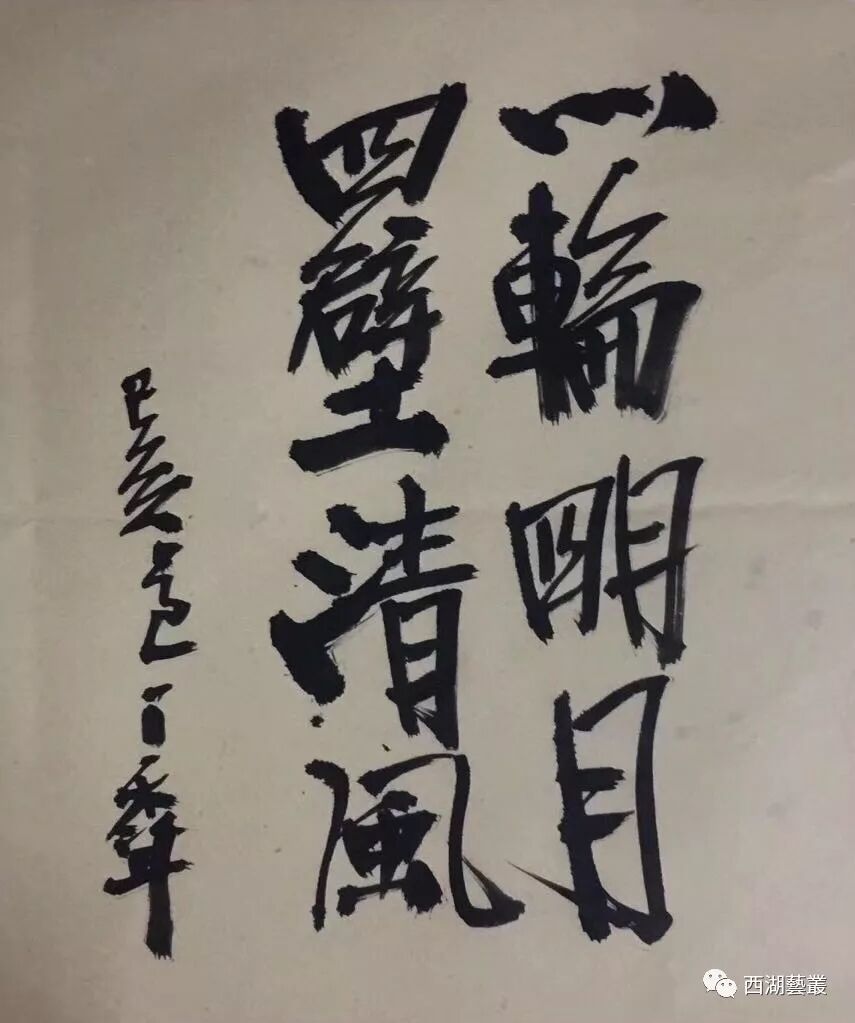 一輪明月
四壁清風
己亥
西湖藝叢